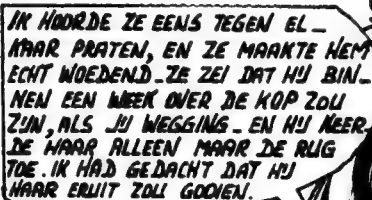 IK HOORDE ZE EENS TEGEN EL-
KAAR PRATEN, EN ZE MAAKTE HEM
ECHT WOEDEND - ZE ZEI DAT HIJ BIN-
NEN EEN WEEK OVER DE KOP ZOU
ZIJN, ALS JIJ WEGGING - EN HIJ KEER-
DE HAAR ALLEEN MAAR DE RUG
TOE. IK HAD GEDACHT DAT HIJ
HAAR ERUIT ZOU GOOIEN.